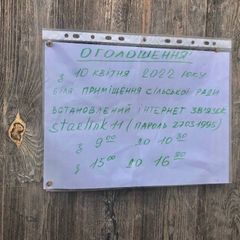 ОГОЛОШЕННЯ
З 10 КВІТНЯ 2022 РОКУ
БІЛЯ ПРИМІЩЕННЯ СІЛЬСЬКОЇ РАДИ
ВСТАНОВЛЕНИЙ ІНТЕРНЕТ ЗВ'ЯЗОК
starlink 11 (ПАРОЛЬ 27031995)
З 9⁰⁰ ДО 10³⁰
З 15⁰⁰ ДО 16³⁰